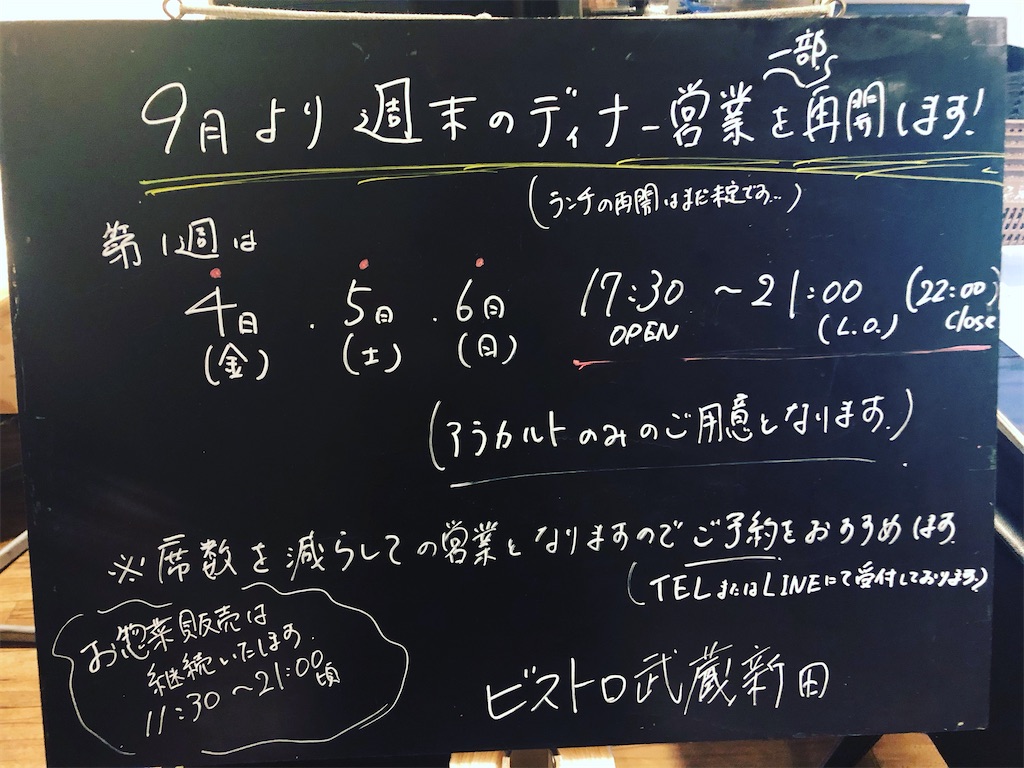 一部
9月より週末のディナー営業を再開します!
(ランチの再開はまだ未定です…)
第1週は
4日 . 5日 . 6日 17:30 ~ 21:00 (22:00)
(金) (土) (日) OPEN (L.O.) Close
(アラカルトのみのご用意となります.)
※席数を減らしての営業となりますのでご予約をおすすめします
(TELまたはLINEにて受付しております)
お惣菜販売は
継続いたします.
11:30~21:00頃
ビストロ武蔵新田